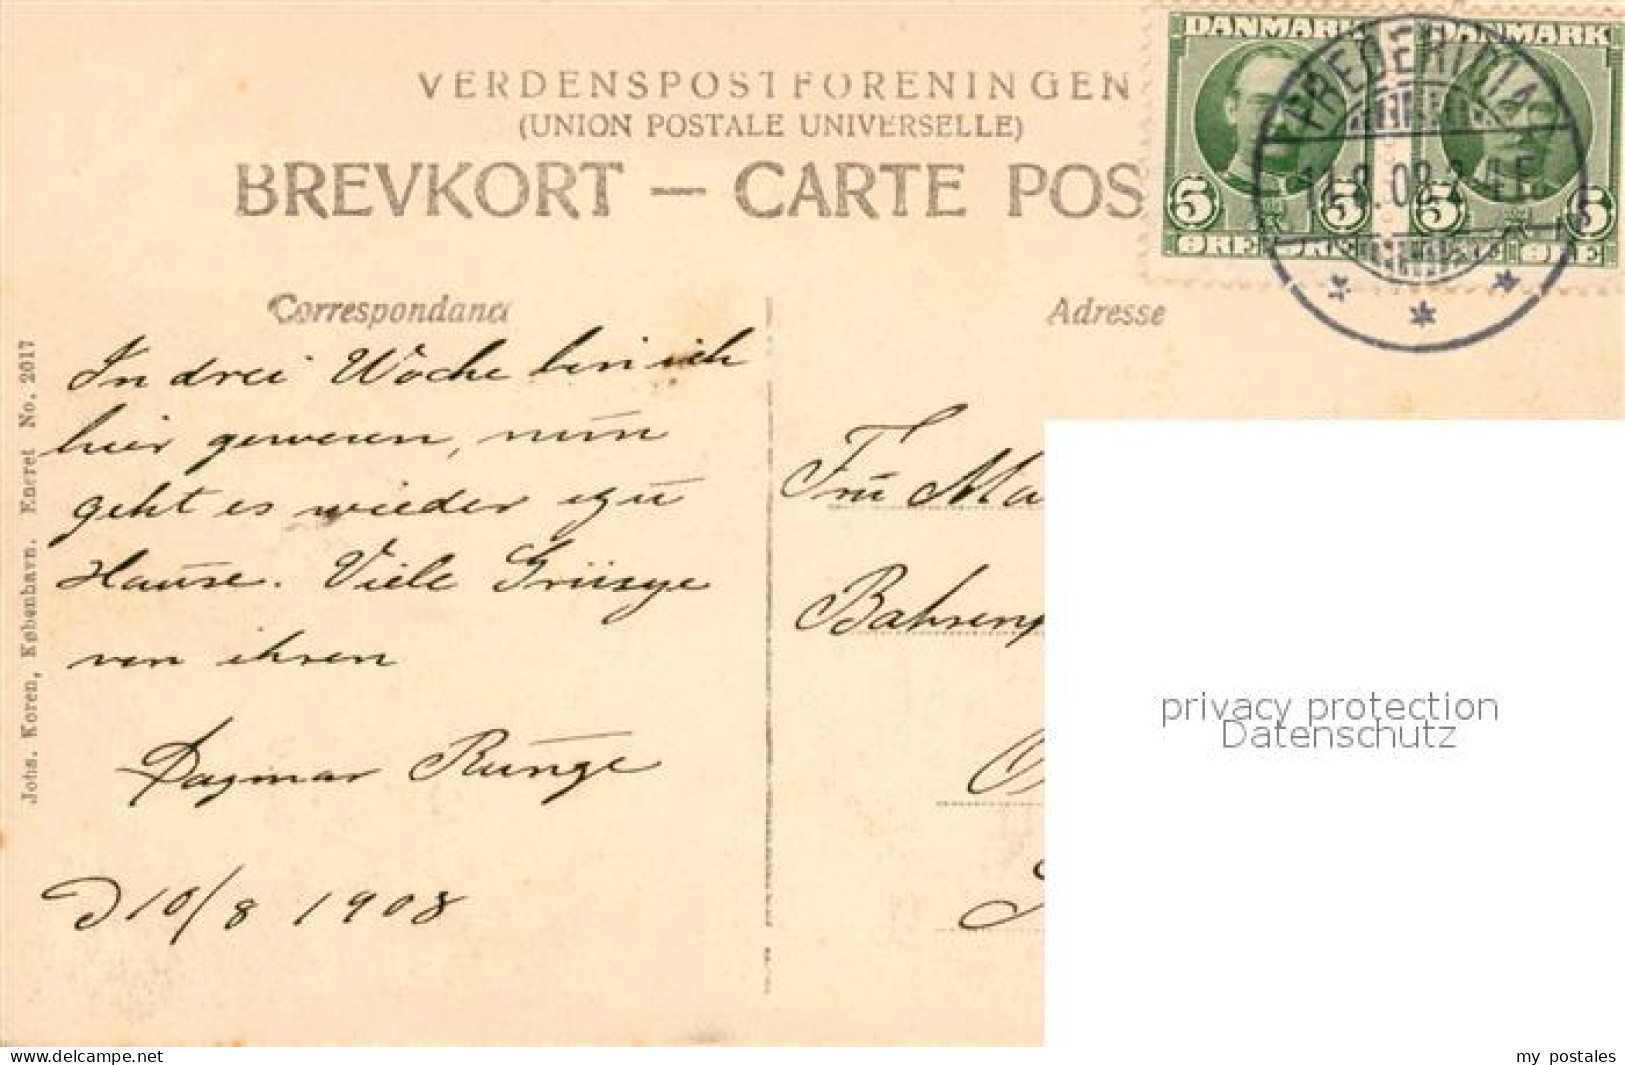 VERDENSPOSTFORENINGEN
(UNION POSTALE UNIVERSELLE)
BREVKORT — CARTE POS
DANMARK DANMARK
5 5 5 5
ØRE ØRE
FREDERICIA
Correspondance
Adresse
In drei Woche bin ich
hier gewesen, nun
geht es wieder zu
Hause. Viele Grüsze
von ihren
Dagmar Runge
D 10/8 1908
Fru Ma
Bahren
Johs. Koren, København. Eneret No. 2017
privacy protection
Datenschutz
www.delcampe.net
my postales